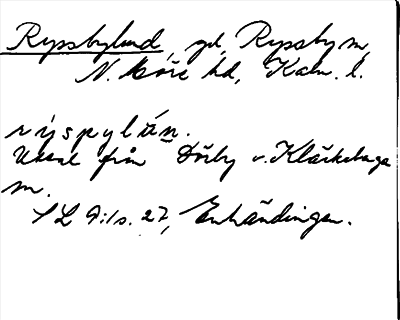 Ryssbylund, gd, Ryssby sn,
N. Möre hd, Kalm. l.
rýspylún.
Uttal från Dörby o. Kläckeberga
sn.
SL Fils. 27, Enhändingen.